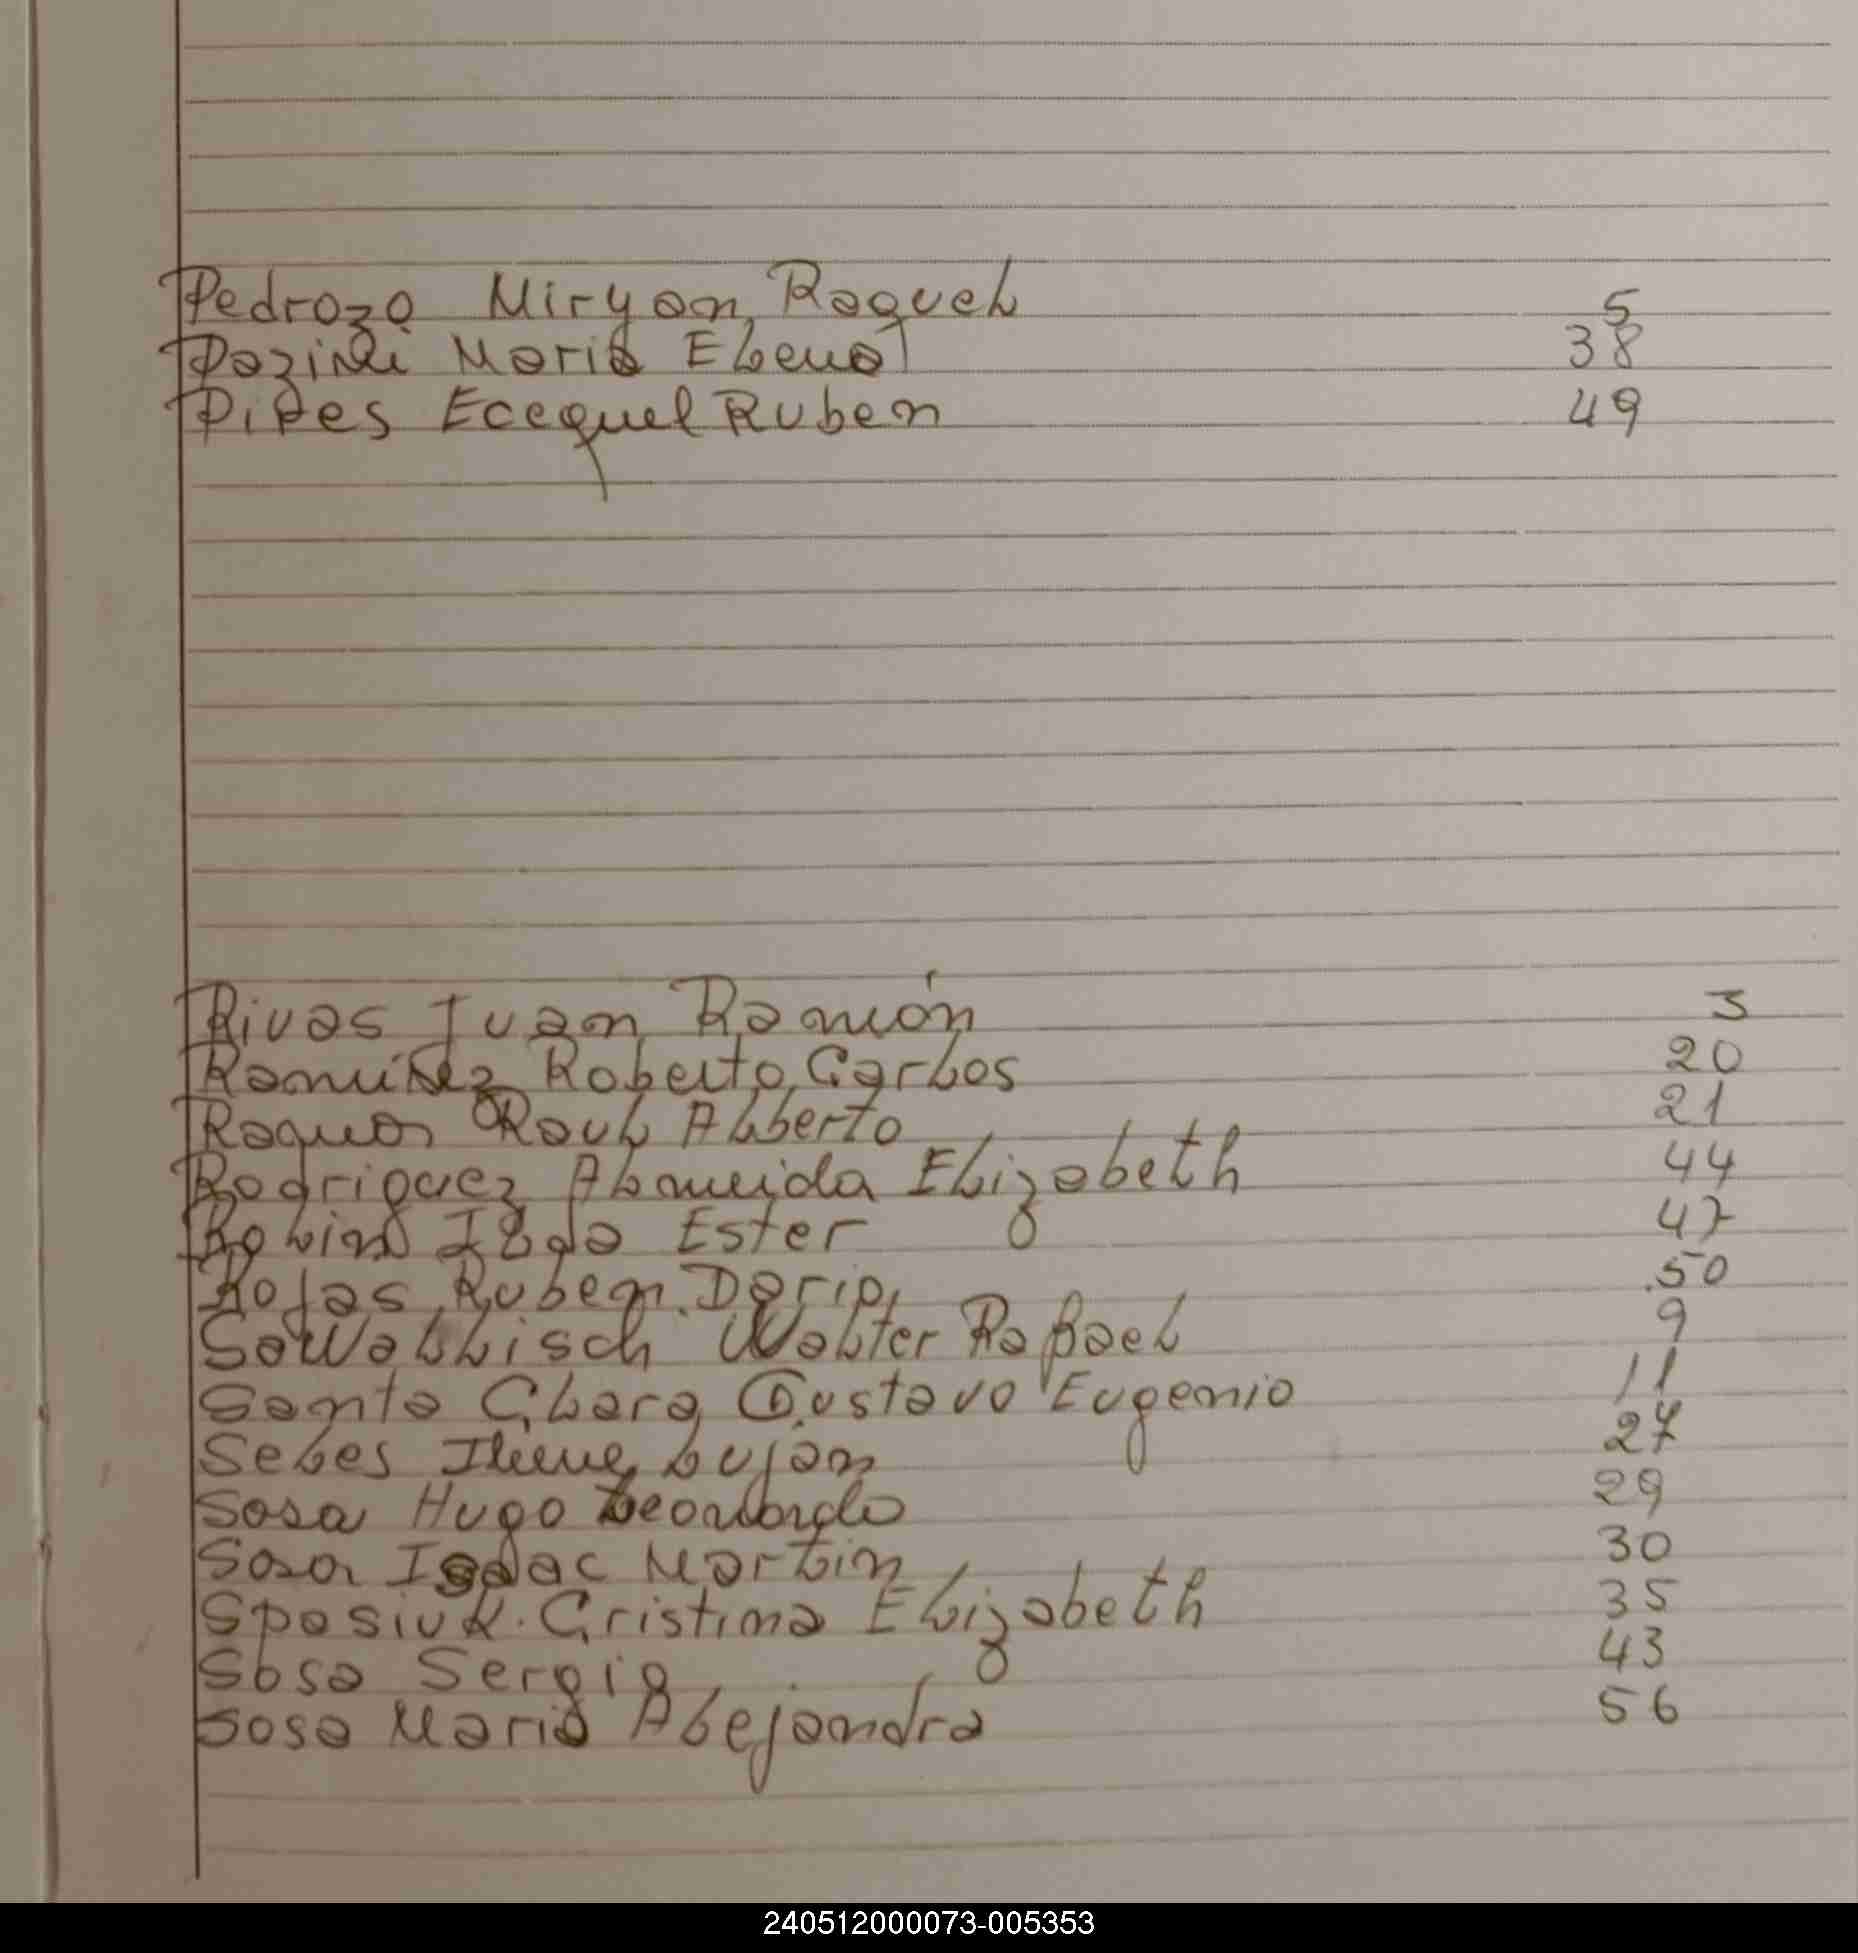 Pedrozo Miryan Raquel 5
Pozini Maria Elena 38
Pires Ecequel Ruben 49
Rivas Juan Ramón 3
Ramirez Roberto Carlos 20
Raquer Raul Alberto 21
Rodriguez Almeida Elizabeth 44
Rolin Ilda Ester 47
Rojas Ruben Dario 50
Sawallisch Walter Rafael 9
Santa Clara Gustavo Eugenio 11
Seles Lujan 27
Sosa Hugo Leonardo 29
Sosa Isaac Martin 30
Sposiuk. Cristina Elizabeth 35
Sosa Sergio 43
Sosa Maria Alejandra 56
240512000073-005353